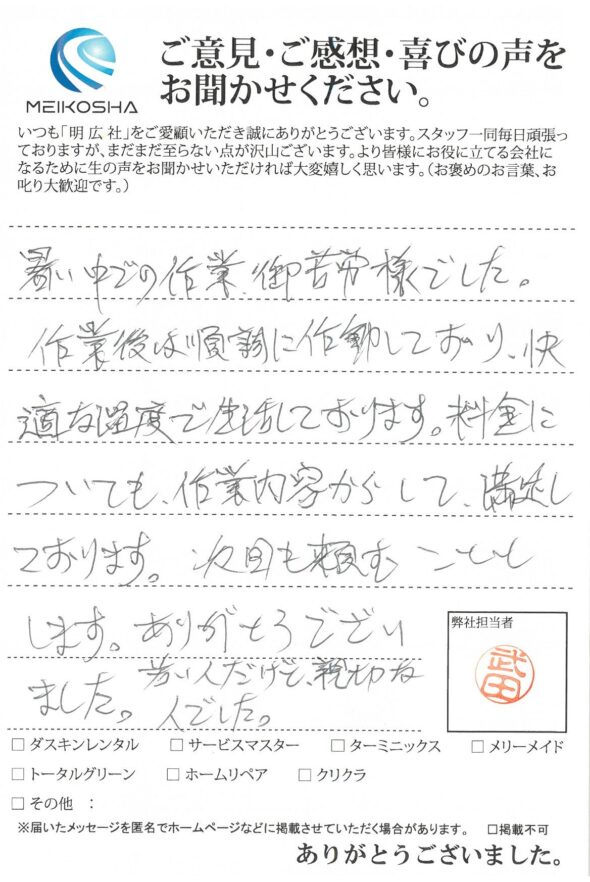 MEIKOSHA
ご意見・ご感想・喜びの声を
お聞かせください。
いつも「明広社」をご愛顧いただき誠にありがとうございます。スタッフ一同毎日頑張っ
ておりますが、まだまだ至らない点が沢山ございます。より皆様にお役に立てる会社に
なるために生の声をお聞かせいただければ大変嬉しく思います。（お褒めのお言葉、お
叱り大歓迎です。）
暑い中での作業、御苦労様でした。
作業後は順調に作動しており、快
適な温度で生活しております。料金に
ついても、作業内容からして、満足し
ております。次回も頼むことと
します。ありがとうござい
ました。
若い人だけど、親切な
人でした。
弊社担当者
武田
□ ダスキンレンタル □ サービスマスター □ ターミニックス □ メリーメイド
□ トータルグリーン □ ホームリペア □ クリクラ
□ その他 ：
※届いたメッセージを匿名でホームページなどに掲載させていただく場合があります。 □掲載不可
ありがとうございました。